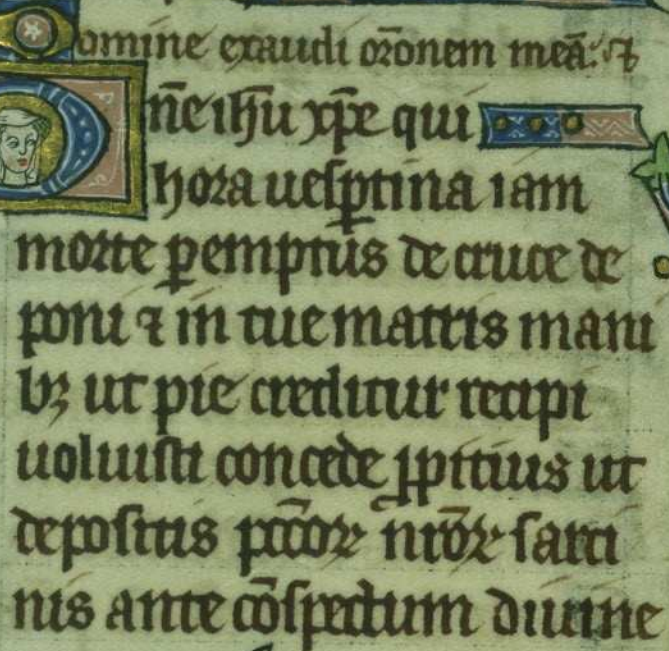 Domine exaudi orōnem meā. ⁊
Dn̄e ihū xp̄e qui
hora uesp̱tina iam
morte p̱emptus de cruce de
poni ⁊ in tue matris mani
bꝫ ut pie creditur recipi
uoluisti concede ꝓpitius ut
depositis pccōꝝ nrōꝝ sarci
nis ante cōspectum diuine